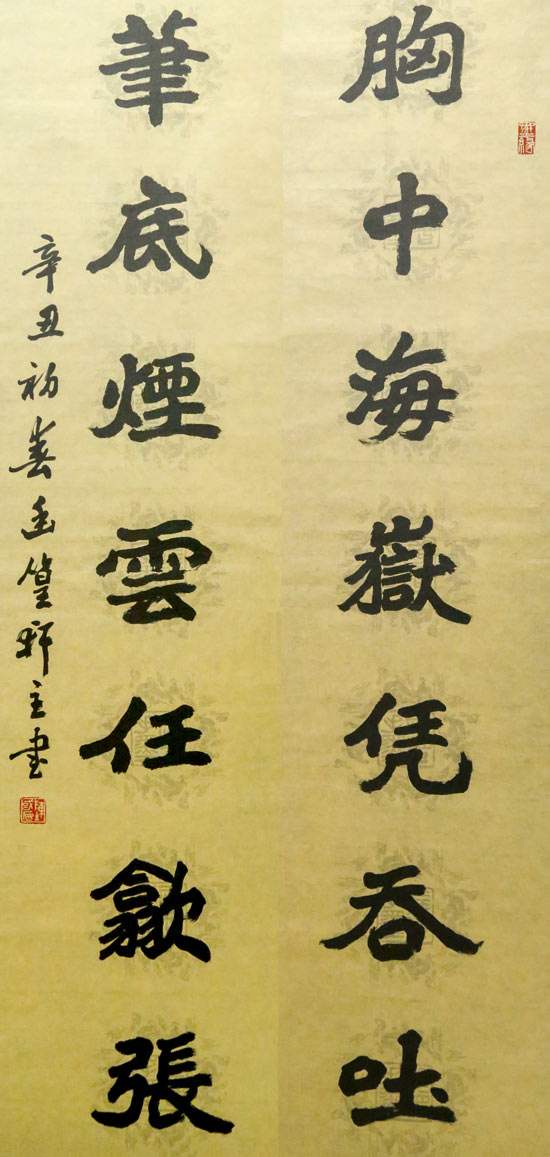 胸中海嶽凭吞吐
筆底煙雲任歙張
辛丑初春幽篁軒主书